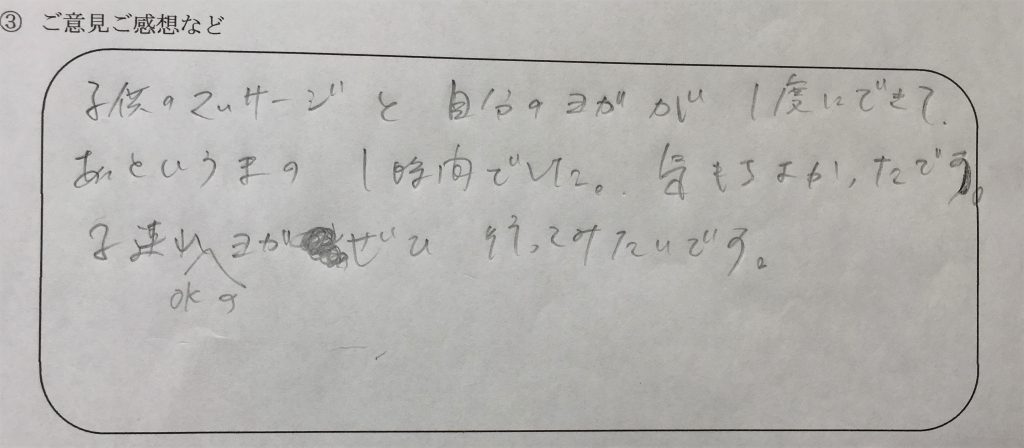 ③ ご意見ご感想など
子供のマッサージと 自分のヨガが 1度にできて、
あっというまの 1時間でした。 気もちよかったです。
子連れOKのヨガ ぜひ やってみたいです。